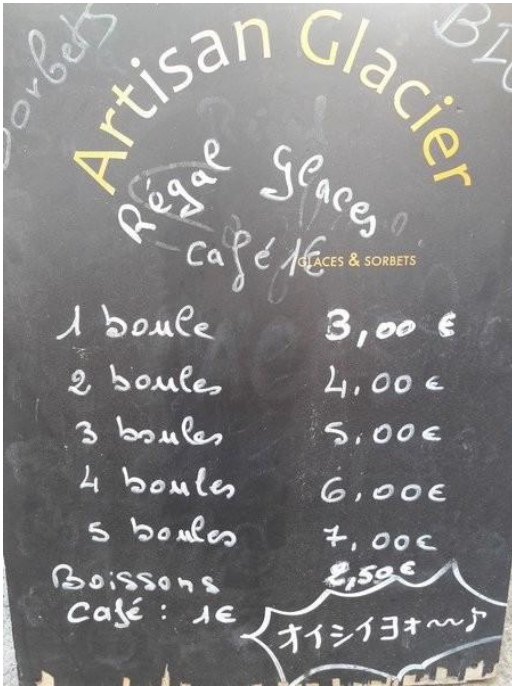 Sorbets
Artisan Glacier
Régal Glaces
Café 1€
GLACES & SORBETS
1 boule 3,00 €
2 boules 4,00 €
3 boules 5,00 €
4 boules 6,00 €
5 boules 7,00 €
Boissons 2,50 €
Café : 1€
オイシイヨォ〜♪